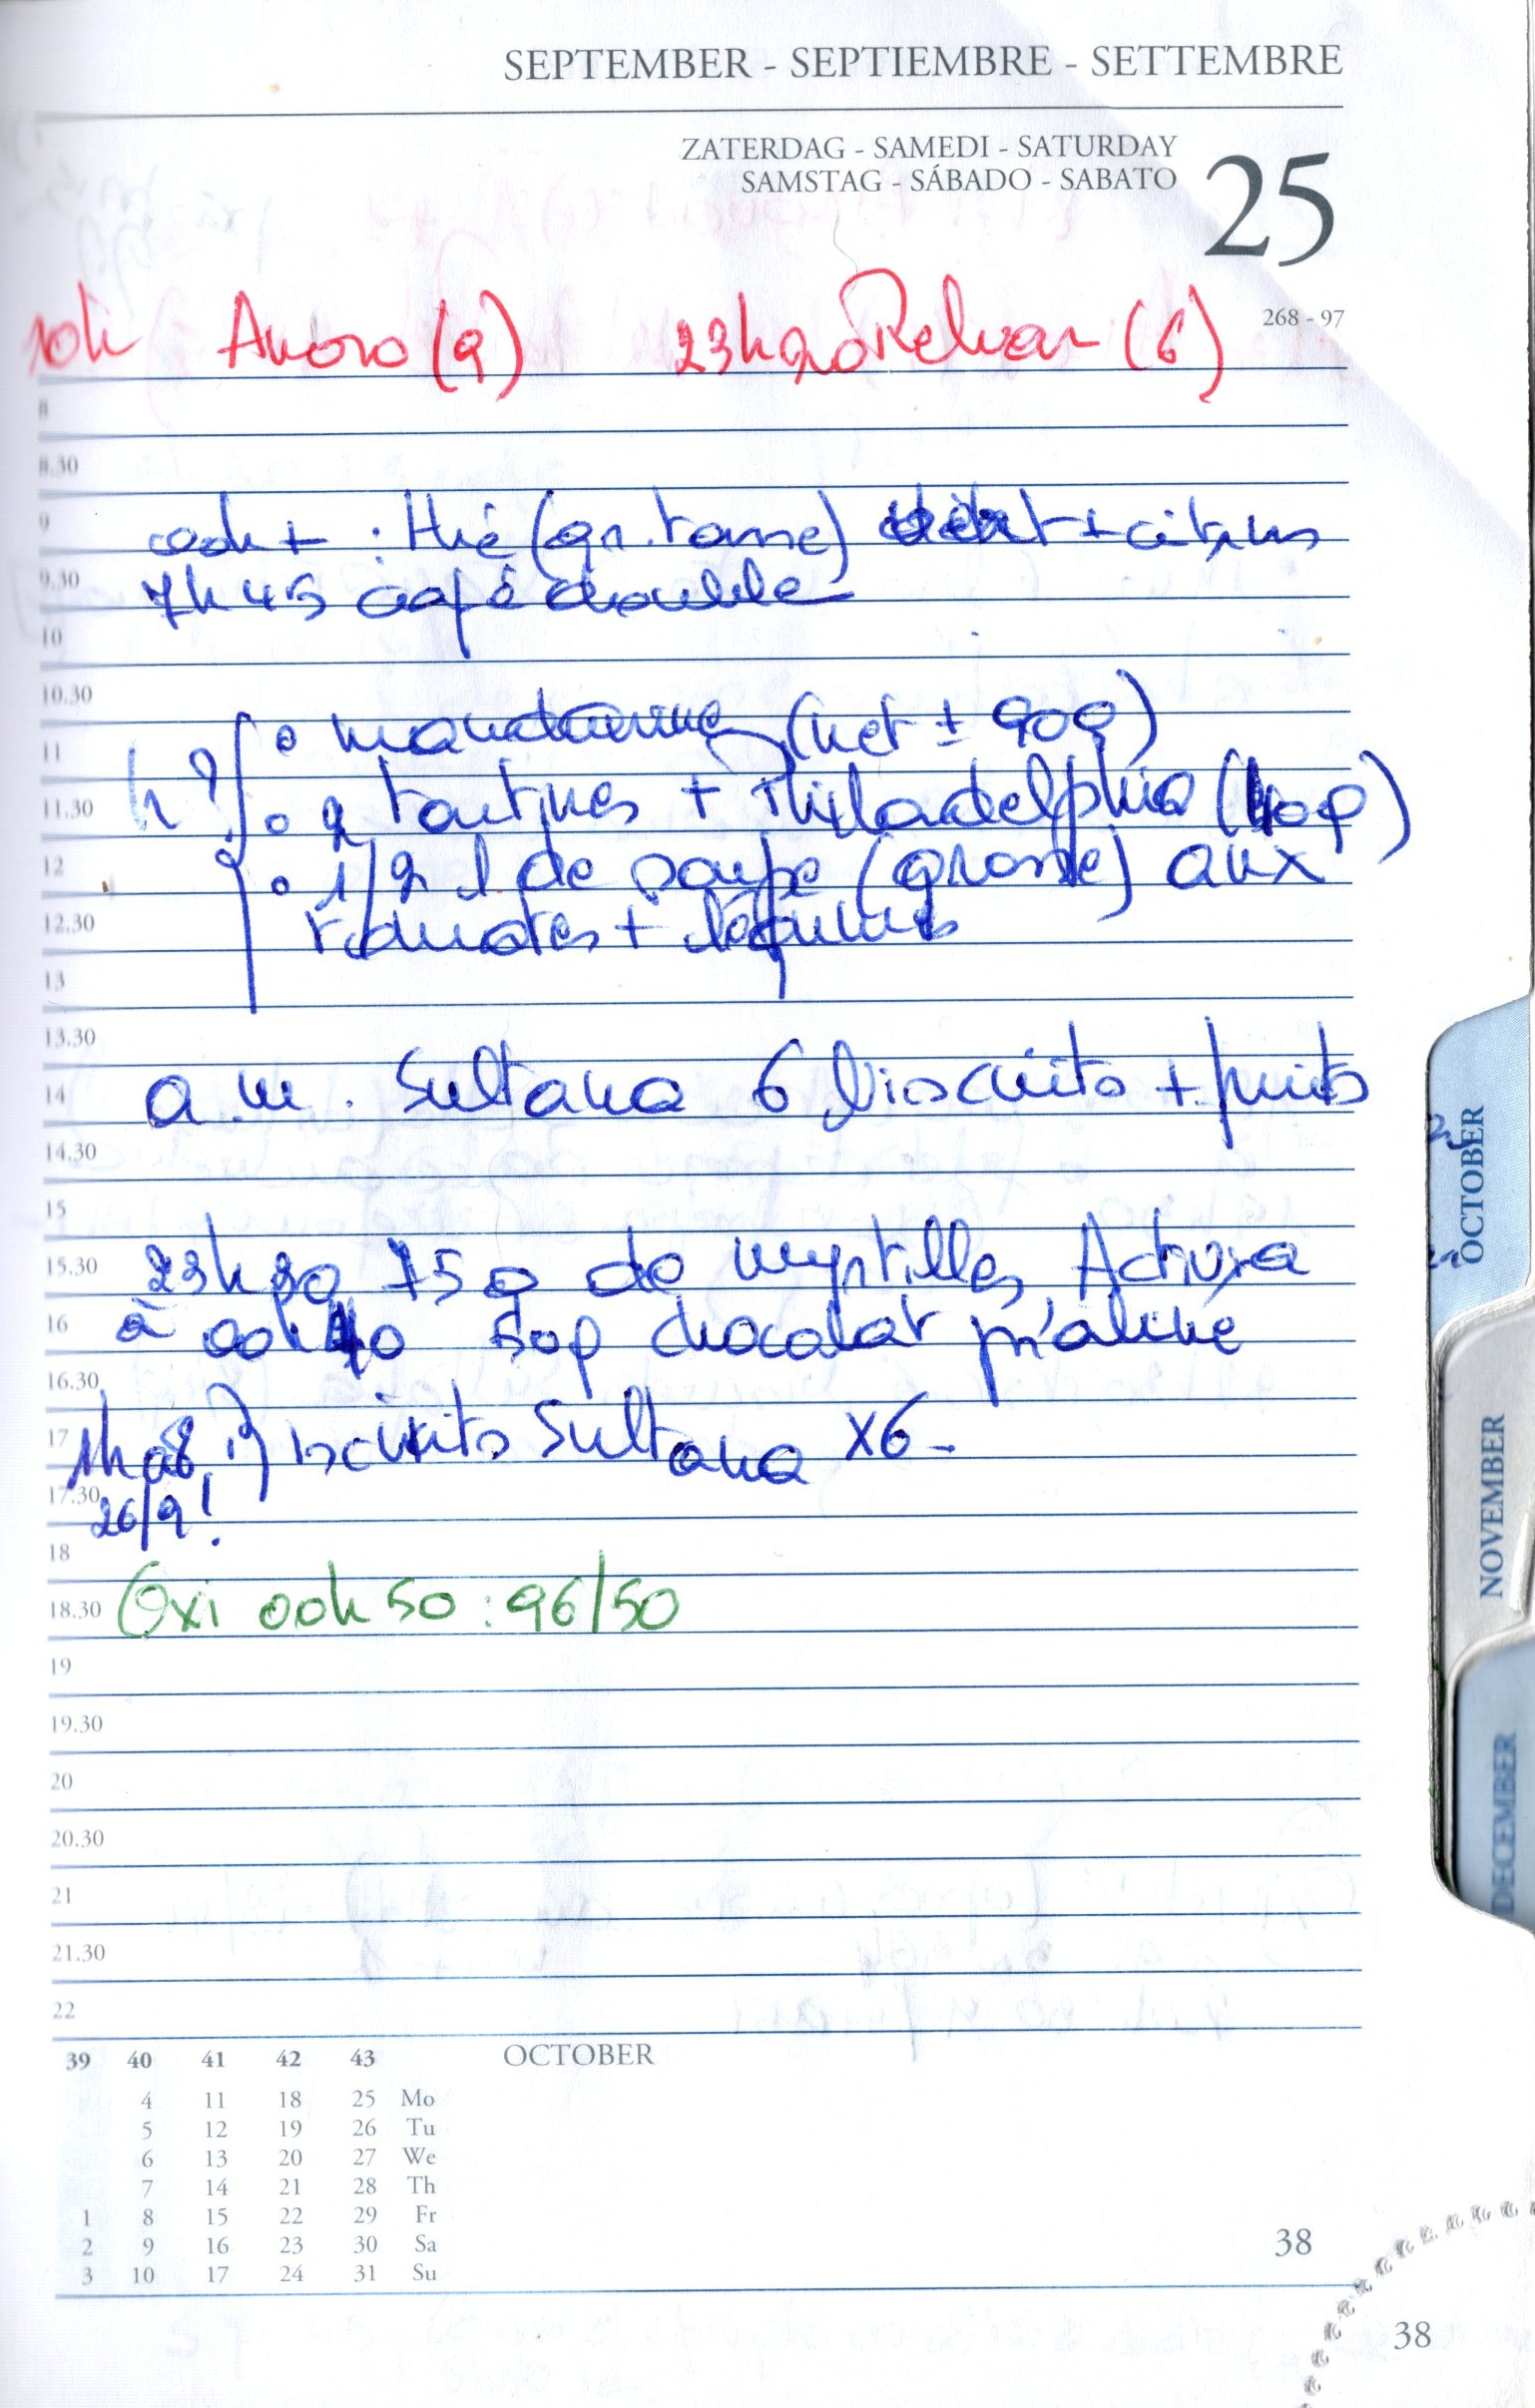 SEPTEMBER - SEPTIEMBRE - SETTEMBRE
ZATERDAG - SAMEDI - SATURDAY
SAMSTAG - SÁBADO - SABATO
25
268 - 97
10h Anoro (9) 23h20 Relvar (6)
8
8.30
9 00h + : thé (gr. tasse) + citrus
9.30 7h45 café double
10
10.30
11 • mandarine (net ± 90g)
11.30 h? • 2 tartines + Philadelphia (40g)
12 • 1/2 l de soupe (grosse) aux
12.30 tomates + légumes
13
13.30
14 a.m. Sultana 6 biscuits + fruits
14.30
15
15.30 23h30 75g de myrtilles, Activia
16 à 00h40 50g chocolat praliné
16.30
17 1h biscuits Sultana x6 -
17.30 26/9!
18
18.30 Oxi 00h50 : 96/50
19
19.30
20
20.30
21
21.30
22
39 40 41 42 43 OCTOBER
4 11 18 25 Mo
5 12 19 26 Tu
6 13 20 27 We
7 14 21 28 Th
1 8 15 22 29 Fr
2 9 16 23 30 Sa
3 10 17 24 31 Su
38
38
OCTOBER
NOVEMBER
DECEMBER